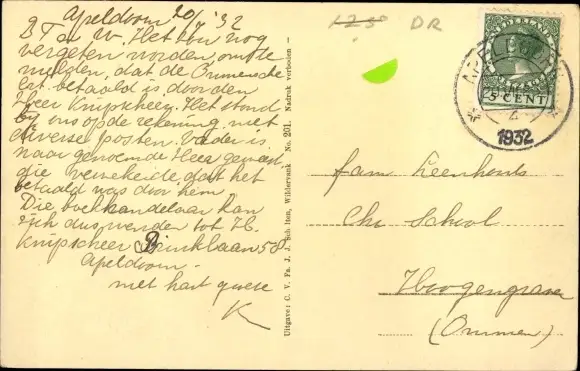 Apeldoorn 20/7 '32
B F de W. Het zou nog
vergeten worden om te
melden, dat de Ommensche
betaald is door den
Heer Knipscheer. Het stond
bij ons op de rekening met
diverse posten. Vader is
naar genoemde Heer geweest
die verzekerde dat het
betaald was door hem.
Die boekhandelaar kan
zich dus wenden tot H.
Knipscheer Brinklaan 58
Apeldoorn.
met hart. groete
K
Uitgave: C. V. Fa. J. J. Sch. Item, Wildervank No. 201. Nadruk verboden
12.50 DR
5 CENT
APELDOORN
1932
fam. Leenhouts
Chr School
Hoogengraven
(Ommen)